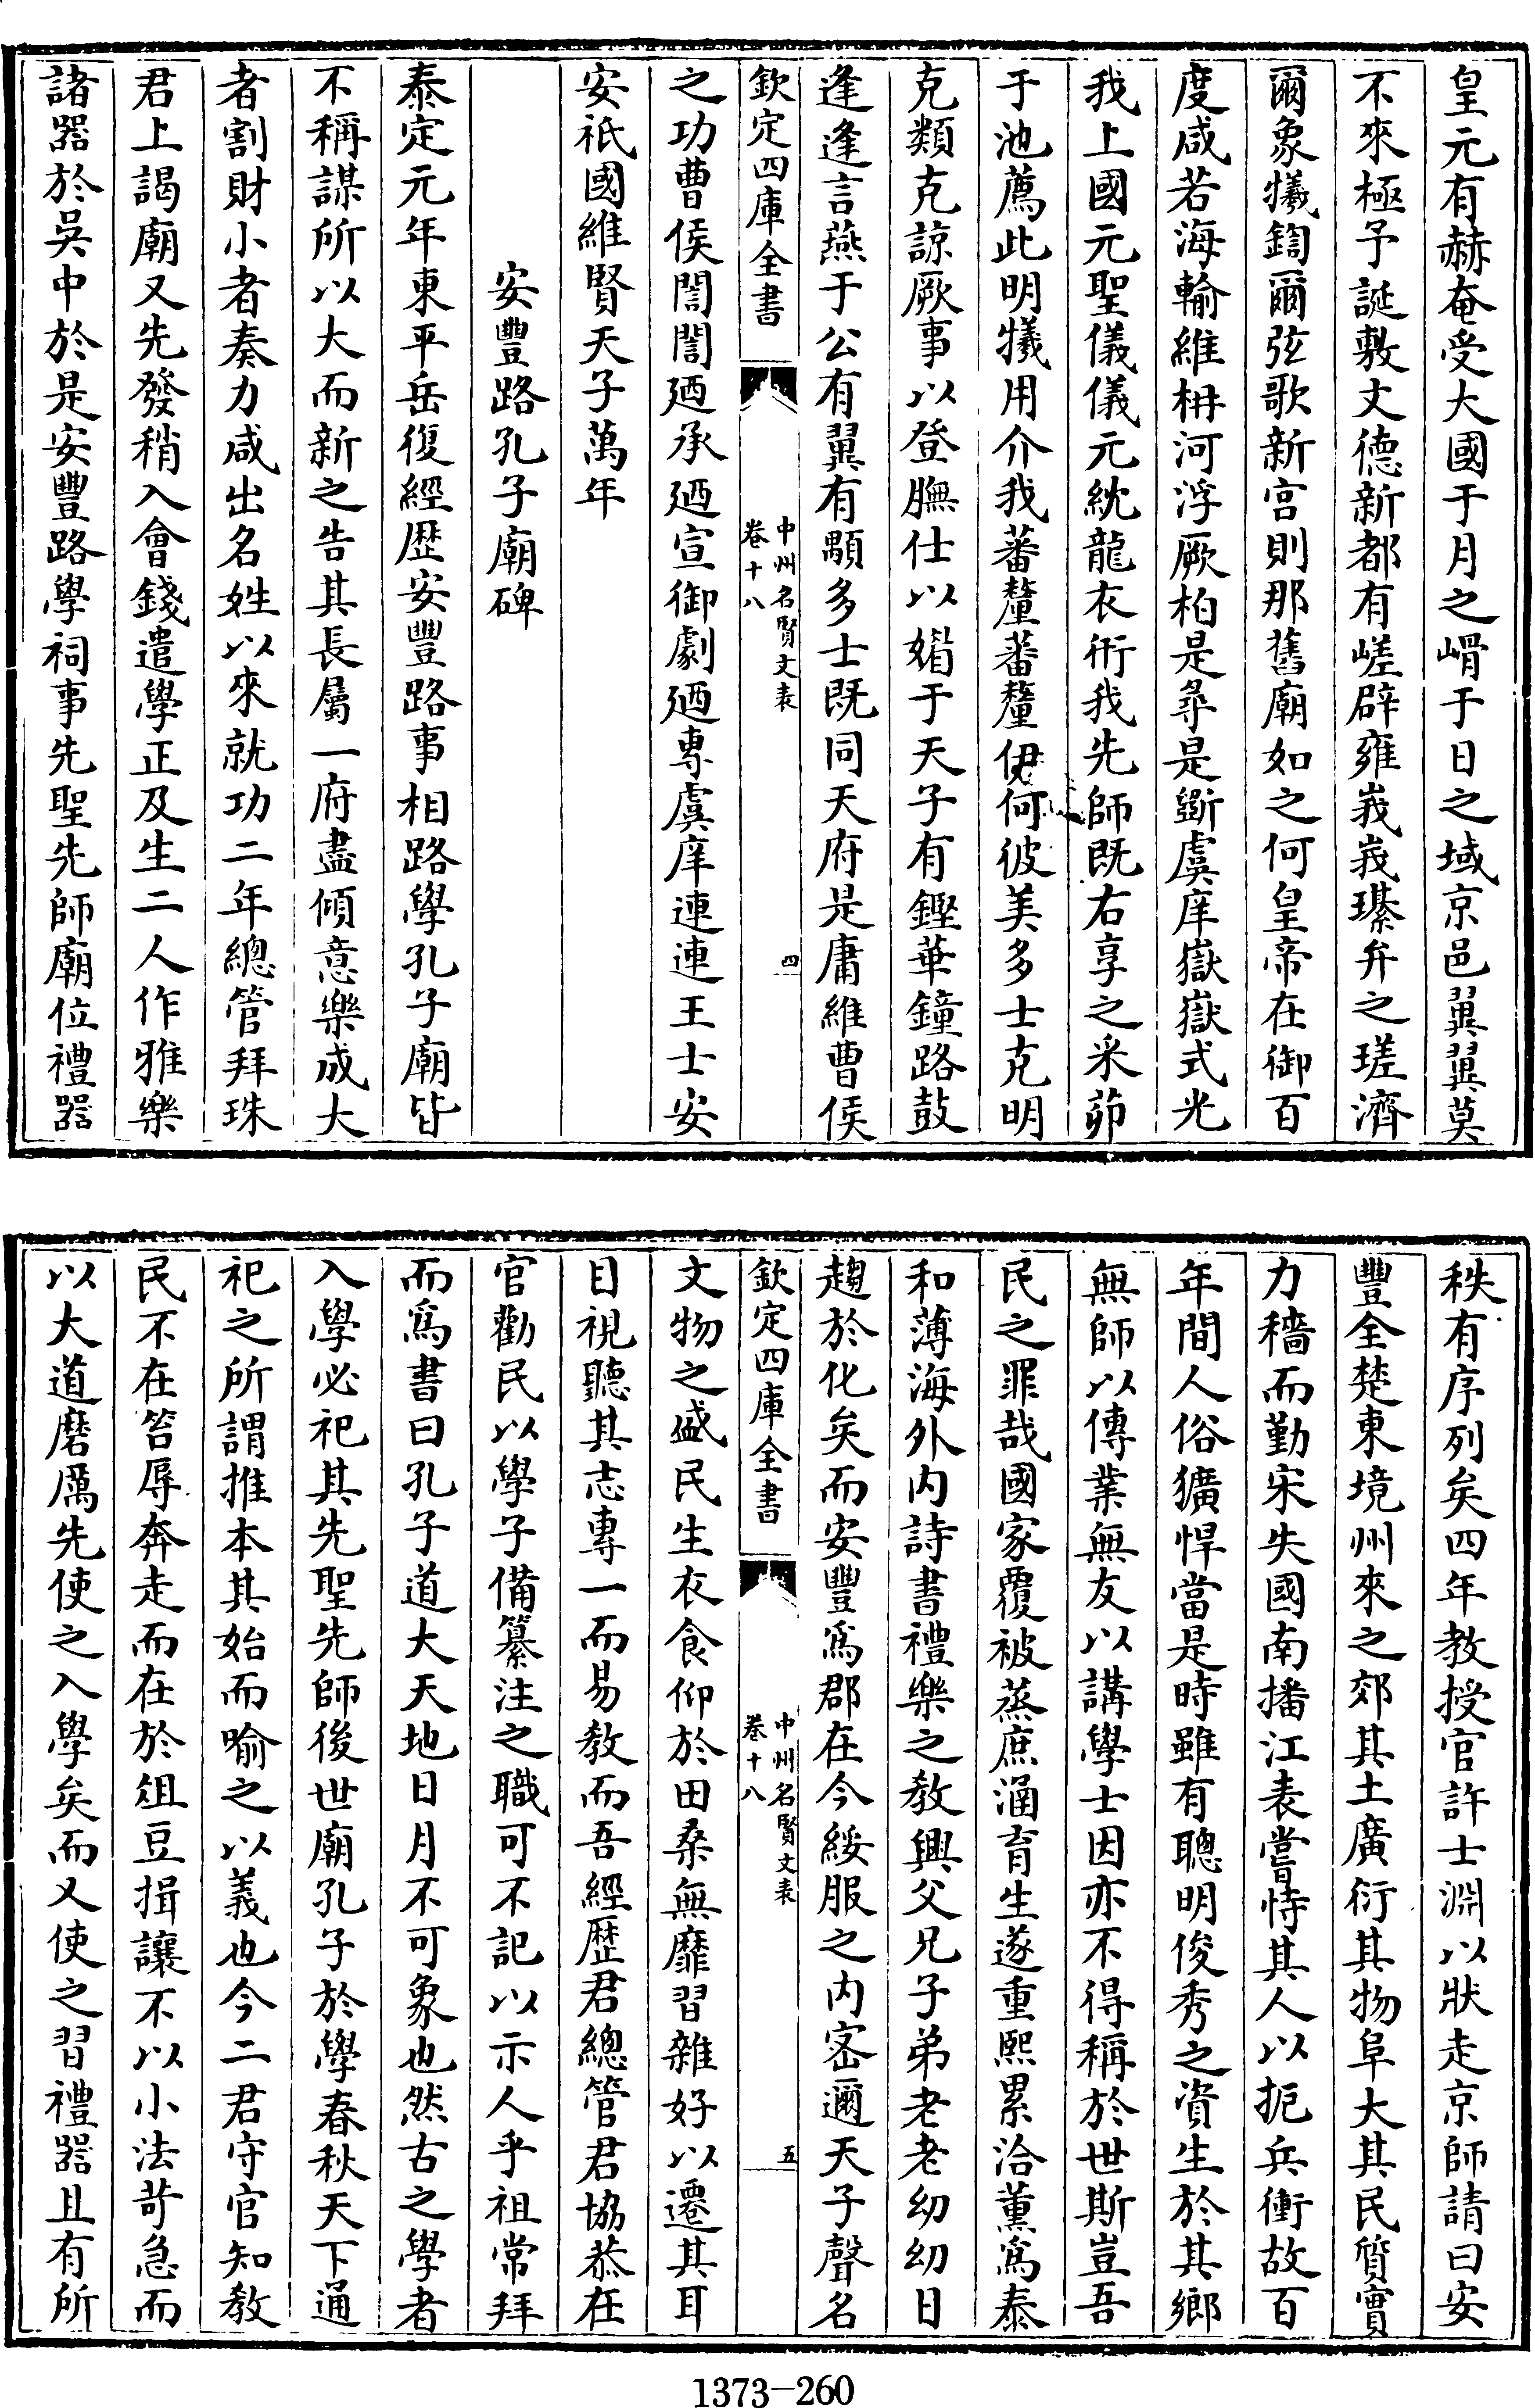 皇元有赫奄受大國于月之嵋于日之域京邑翼翼莫
不來極予誕敷文德新都有嵯辟雍峩峩璂弁之瑳濟
爾象犧鉶爾弦歌新宫則那舊廟如之何皇帝在御百
度咸若海輸維枏河浮厥柏是尋是斵虞庠嶽嶽式光
我上國元聖儀儀元統龍衣術我先師既右享之采茆
于池薦此明犧用介我蕃釐蕃釐伊何彼美多士克明
克類克諒厥事以登膴仕以媚于天子有鏗華鐘路鼓
逢逢言燕于公有翼有顒多士既同天府是庸維曹侯
欽定四庫全書
中州名賢文表
卷十八
四
之功曹侯誾誾廼承廼宣御劇廼專虞庠連連王士安
安祇國維賢天子萬年
安豐路孔子廟碑
泰定元年東平岳復經歴安豐路事相路學孔子廟皆
不稱謀所以大而新之告其長屬一府盡傾意樂成大
者割財小者奏力咸出名姓以來就功二年總管拜珠
君上謁廟又先發稍入會錢遣學正及生二人作雅樂
諸器於吳中於是安豐路學祠事先聖先師廟位禮器
秩有序列矣四年教授官許士淵以狀走京師請曰安
豐全楚東境州來之郊其土廣衍其物阜大其民質實
力穡而勤宋失國南播江表嘗恃其人以扼兵衝故百
年間人俗獷悍當是時雖有聰明俊秀之資生於其鄉
無師以傳業無友以講學士因亦不得稱於世斯豈吾
民之罪哉國家覆被蒸庶涵育生遂重熙累洽薰為泰
和薄海外内詩書禮樂之教興父兄子弟老老幼幼日
趨於化矣而安豐為郡在今綏服之内密邇天子聲名
欽定四庫全書
中州名賢文表
卷十八
五
文物之盛民生衣食仰於田桑無靡習雜好以遷其耳
目視聽其志專一而易教而吾經歴君總管君協恭在
官勸民以學子備纂注之職可不記以示人乎祖常拜
而為書曰孔子道大天地日月不可象也然古之學者
入學必祀其先聖先師後世廟孔子於學春秋天下通
祀之所謂推本其始而喻之以義也今二君守官知教
民不在笞辱奔走而在於俎豆揖讓不以小法苛急而
以大道磨厲先使之入學矣而又使之習禮器且有所
1373—260